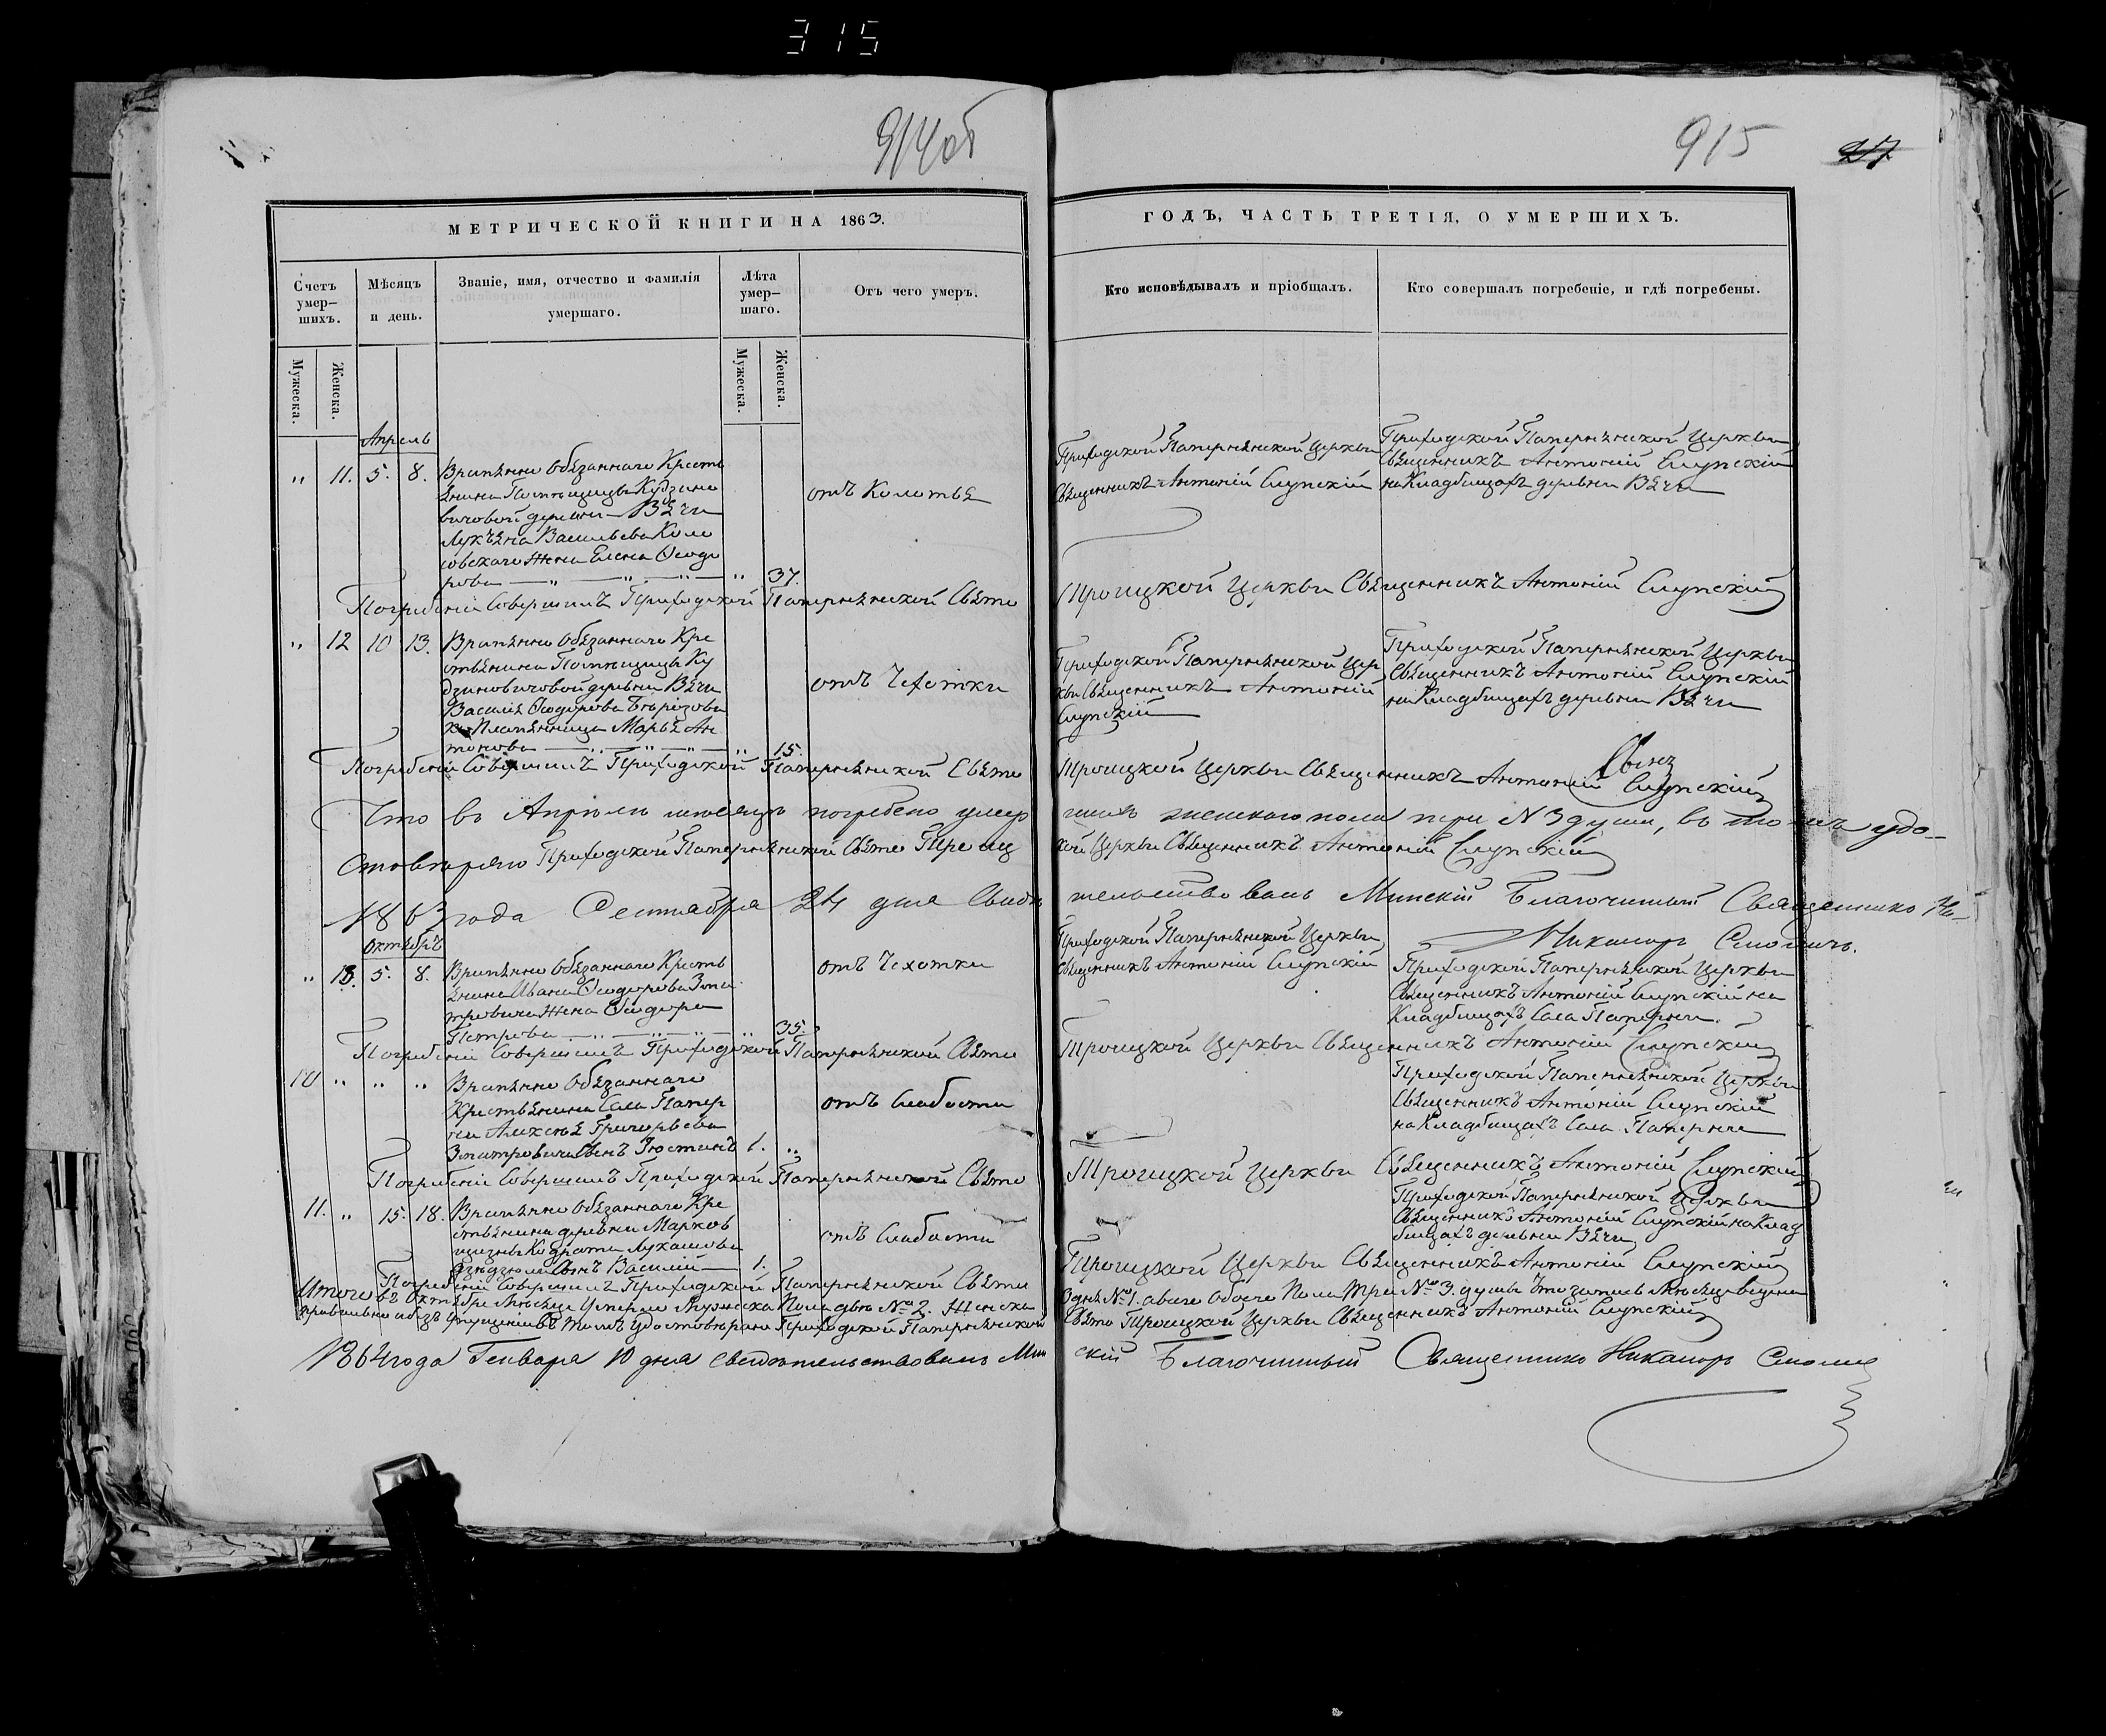 315
914об
915
217
МЕТРИЧЕСКОЙ КНИГИ НА 1863.
ГОДЪ, ЧАСТЬ ТРЕТІЯ, О УМЕРШИХЪ.
Счетъ умер–шихъ.
Мѣсяцъ и день.
Званіе, имя, отчество и фамилія умершаго.
Лѣта умер–шаго.
Отъ чего умеръ.
Кто исповѣдывалъ и пріобщалъ.
Кто совершалъ погребеніе, и гдѣ погребены.
Мужеска.
Женска.
Мужеска.
Женска.
Апрель
" 11. 5. 8.
Временно Обязаннаго Кресть
янина Помѣщицы Кудзино
вичовой деревни Вячи
Лукъяна Васильева Коло
совскаго Жена Елена Ѳеодо
рова " 37.
отъ Колотья
Приходской Папернянской Церкви
Священникъ Антоній Слупскій
Приходской Папернянской Церкви
Священникъ Антоній Слупскій
на Кладбищахъ деревни Вячи
Погребеніе Совершилъ Приходской Папернянской Свято Троицкой Церкви Священникъ Антоній Слупскій
" 12 10 13.
Временно Обязаннаго Кре
стьянина Помѣщицы Ку
дзиновичовой деревни Вячи
Василя Ѳеодорова Борозова
Племянница Марья Ан
тонова " 15.
отъ Чехотки
Приходской Папернянской Цер
кви Священникъ Антоній
Слупскій
Приходской Папернянской Церкви
Священникъ Антоній Слупскій
на Кладбищахъ деревни Вячи
Погребеніе Совершилъ Приходской Папернянской Свято Троицкой Церкви Священникъ Антоній Слупскій
Что въ Апрѣлѣ мѣсяцѣ погребено умер шихъ женскаго пола три №3 души, въ томъ удо–
стовѣряю Приходской Папернянской Свято Троиц кой Церкви Священникъ Антоній Слупскій
1863 года Сентября 24 дня Свидѣ тельствовалъ Минскій Благочинный Священникъ Ни–
Никаноръ Смоличъ.
Октябрь
" 13. 5. 8.
Временно Обязаннаго Кресть
янина Ивана Ѳеодорова Зми
тровича Жена Ѳеодора
Петрова " 35.
отъ Чехотки
Приходской Папернянской Церкви
Священникъ Антоній Слупскій
Приходской Папернянской Церкви
Священникъ Антоній Слупскій на
Кладбищахъ Села Паперни.
Погребеніе Совершилъ Приходской Папернянской Свято Троицкой Церкви Священникъ Антоній Слупскій
10 " " "
Временно Обязаннаго
Крестьянина Села Папер
ни Алексѣя Григорьева
Змитровича Сынъ Іюстинъ 1. "
отъ Слабости
Приходской Папернянской Церкви
Священникъ Антоній Слупскій
на Кладбищахъ Села Паперни
Погребеніе Совершилъ Приходской Папернянской Свято Троицкой Церкви Священникъ Антоній Слупскій
11. " 15. 18.
Временно Обязаннаго Кре
стьянина деревни Марков
щизны Кодрата Лукашова
Сынъ Василій 1.
отъ Слабости
Приходской Папернянской Церкви
Священникъ Антоній Слупскій на Клад
бищахъ деревни Вячи
Погребеніе Совершилъ Приходской Папернянской Свято Троицкой Церкви Священникъ Антоній Слупскій
Итого въ Октябре Мѣсяце Умерло Мужеска Пола двѣ №2. Женска Одна №1. а всего Обоего Пола три №3. души Что запись Мѣсяца ведена
правильно и безъ упущеній въ томъ Удостовѣряю Приходской Папернянской Свято Троицкой Церкви Священникъ Антоній Слупскій
1864 года Генваря 10 дня свидѣтельствовалъ Мин скій Благочинный Священникъ Никаноръ Смолич